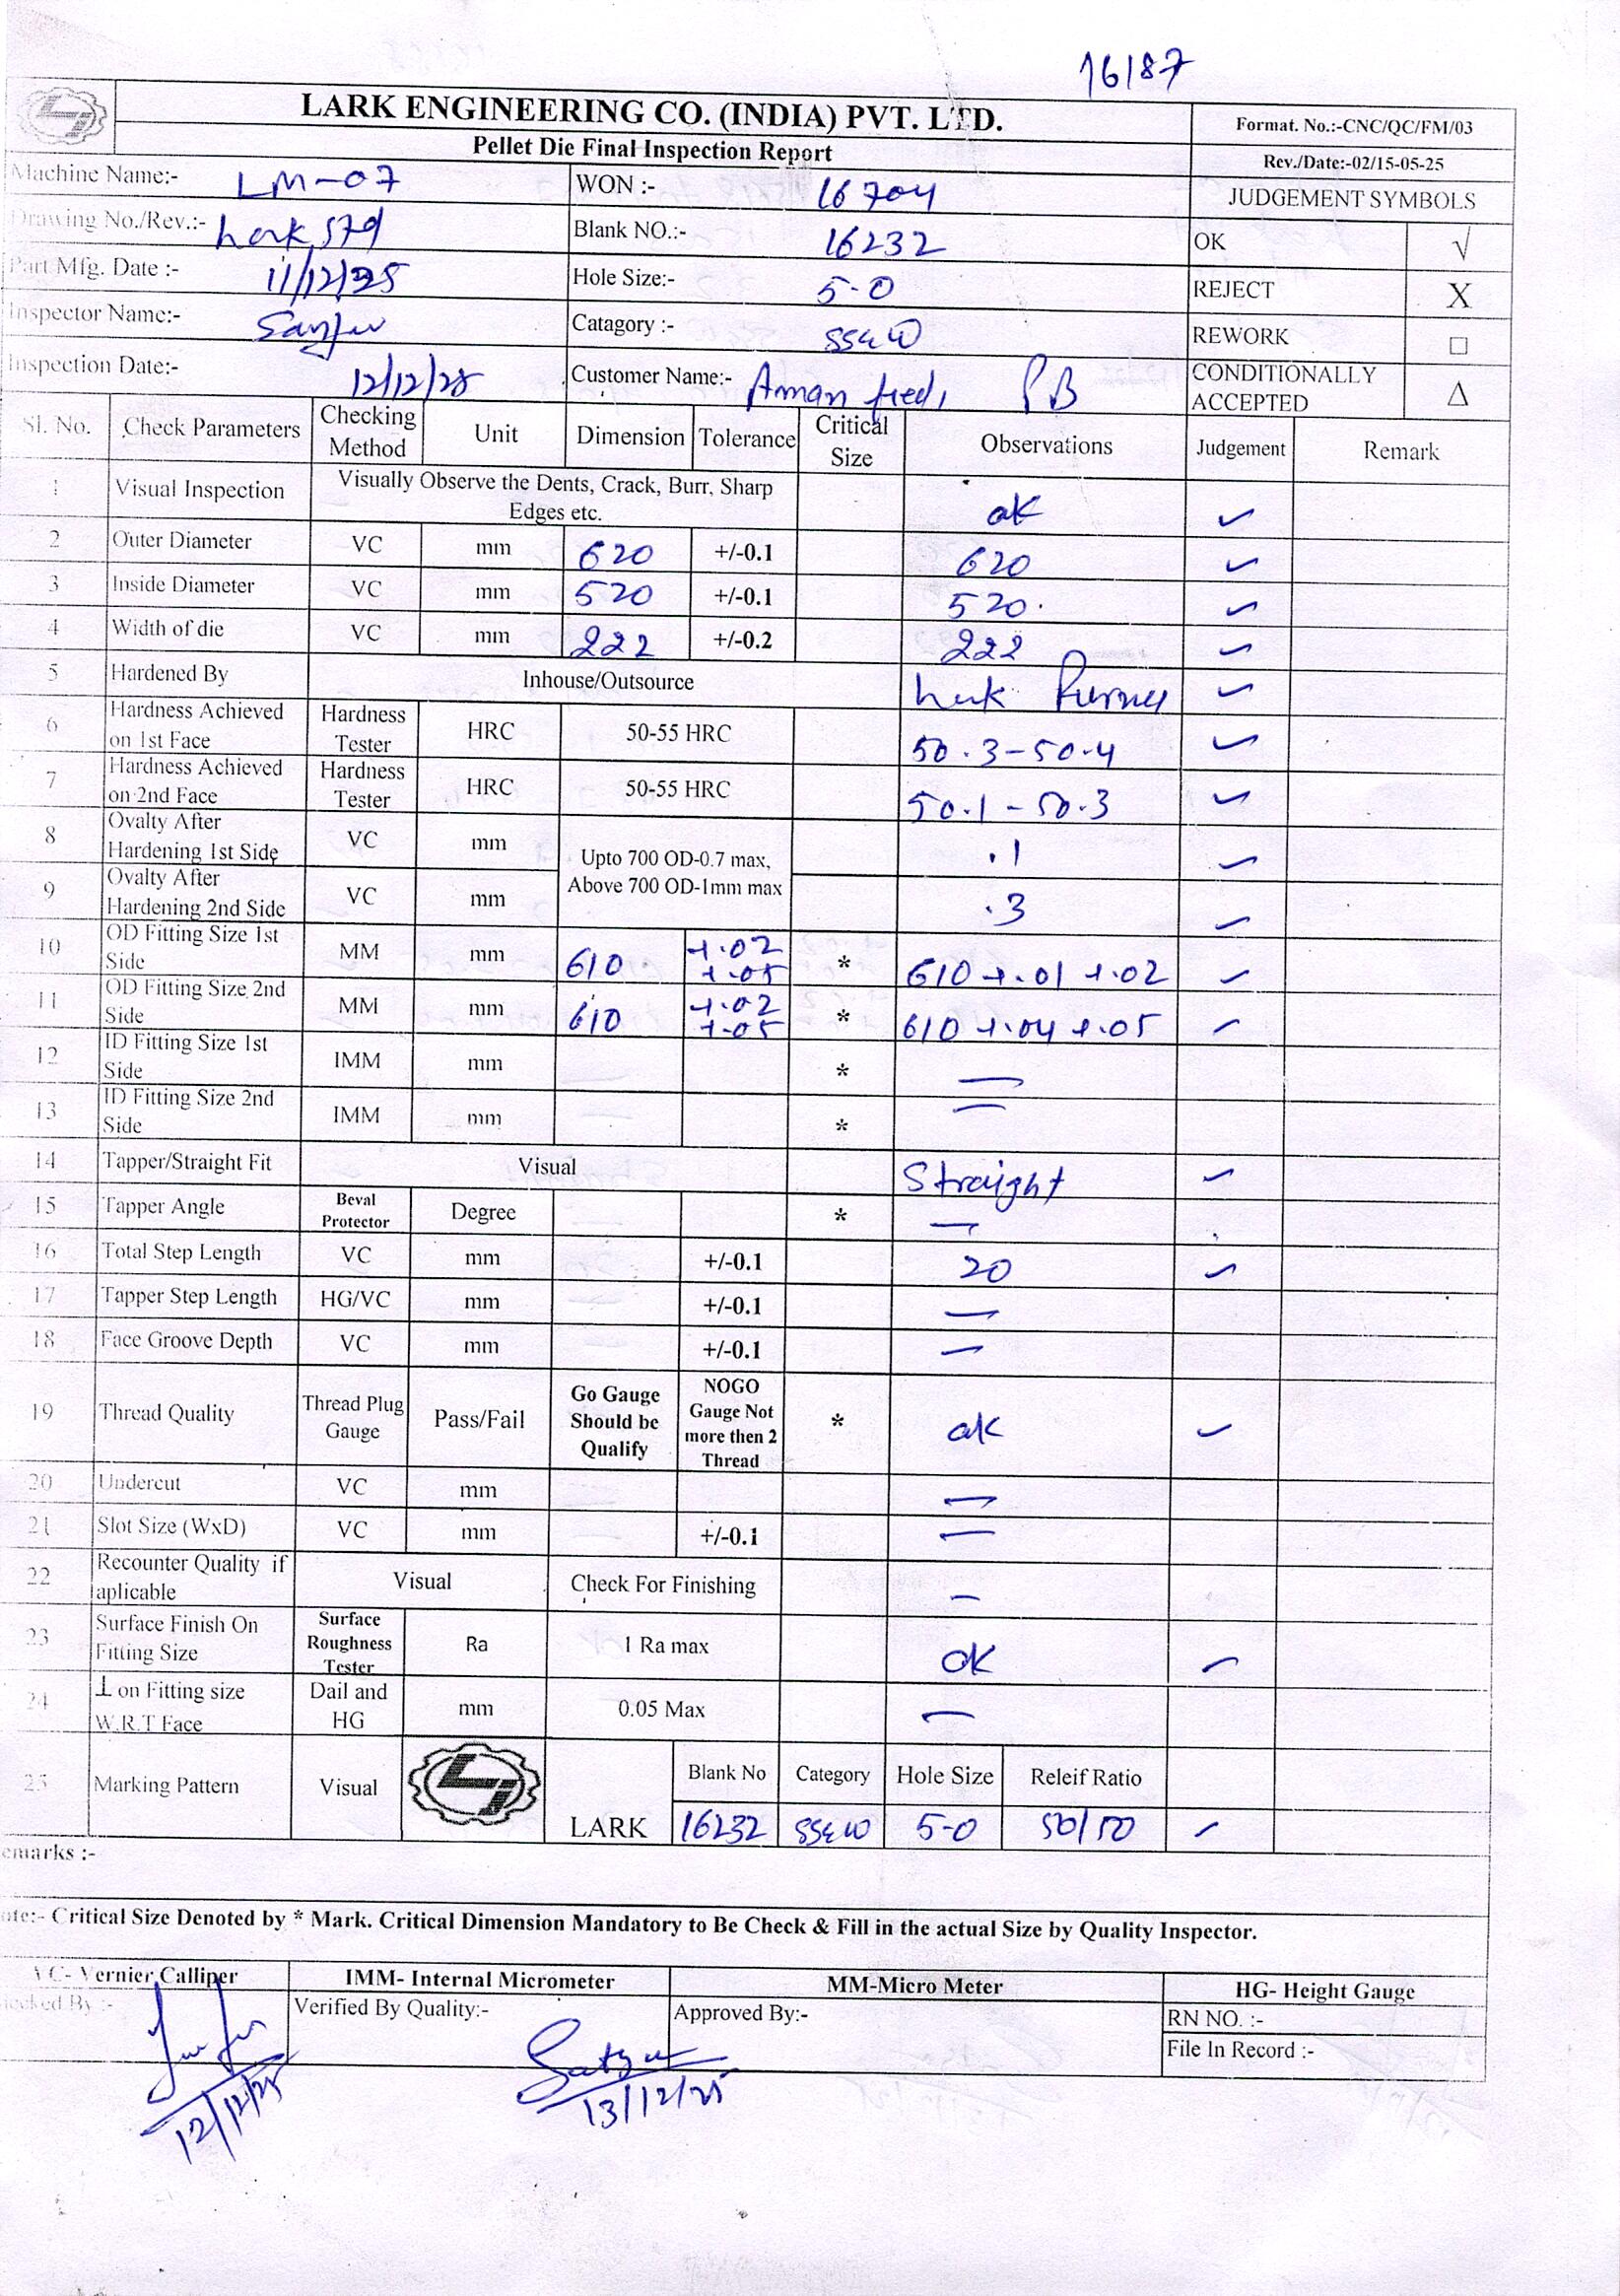 16187
LARK ENGINEERING CO. (INDIA) PVT. LTD.
Format. No.:-CNC/QC/FM/03
Pellet Die Final Inspection Report
Rev./Date:-02/15-05-25
Machine Name:- LM-07 WON :- 16704 JUDGEMENT SYMBOLS
Drawing No./Rev.:- Lark std Blank NO.:- 16232 OK √
Part Mfg. Date :- 11/12/25 Hole Size:- 5.0 REJECT X
Inspector Name:- Catagory :- REWORK □
Inspection Date:- 12/12/25 Customer Name:- Aman feed, PB CONDITIONALLY ACCEPTED Δ
Sl. No. Check Parameters Checking Method Unit Dimension Tolerance Critical Size Observations Judgement Remark
1 Visual Inspection Visually Observe the Dents, Crack, Burr, Sharp Edges etc. ok ✓
2 Outer Diameter VC mm 620 +/-0.1 620 ✓
3 Inside Diameter VC mm 520 +/-0.1 520. ✓
4 Width of die VC mm 222 +/-0.2 222 ✓
5 Hardened By Inhouse/Outsource ✓
6 Hardness Achieved on 1st Face Hardness Tester HRC 50-55 HRC 50.3-50.4 ✓
7 Hardness Achieved on 2nd Face Hardness Tester HRC 50-55 HRC 50.1-50.3 ✓
8 Ovalty After Hardening 1st Side VC mm Upto 700 OD-0.7 max, Above 700 OD-1mm max .1 ✓
9 Ovalty After Hardening 2nd Side VC mm .3 ✓
10 OD Fitting Size 1st Side MM mm 610 +.02 +.05 * 610 +.01 +.02 ✓
11 OD Fitting Size 2nd Side MM mm 610 +.02 +.05 * 610 +.04 +.05 ✓
12 ID Fitting Size 1st Side IMM mm * —
13 ID Fitting Size 2nd Side IMM mm * —
14 Tapper/Straight Fit Visual Straight ✓
15 Tapper Angle Beval Protector Degree * —
16 Total Step Length VC mm +/-0.1 20 ✓
17 Tapper Step Length HG/VC mm +/-0.1 —
18 Face Groove Depth VC mm +/-0.1 —
19 Thread Quality Thread Plug Gauge Pass/Fail Go Gauge Should be Qualify NOGO Gauge Not more then 2 Thread * ok ✓
20 Undercut VC mm —
21 Slot Size (WxD) VC mm +/-0.1 —
22 Recounter Quality if aplicable Visual Check For Finishing —
23 Surface Finish On Fitting Size Surface Roughness Tester Ra 1 Ra max ok ✓
24 ⊥ on Fitting size W.R.T Face Dail and HG mm 0.05 Max —
25 Marking Pattern Visual LARK Blank No Category Hole Size Releif Ratio
16232 5.0 50/50 ✓
emarks :-
ote:- Critical Size Denoted by * Mark. Critical Dimension Mandatory to Be Check & Fill in the actual Size by Quality Inspector.
VC- Vernier Calliper IMM- Internal Micrometer MM-Micro Meter HG- Height Gauge
ecked By :- Verified By Quality:- Approved By:- RN NO. :-
File In Record :-
12/12/25 13/12/25